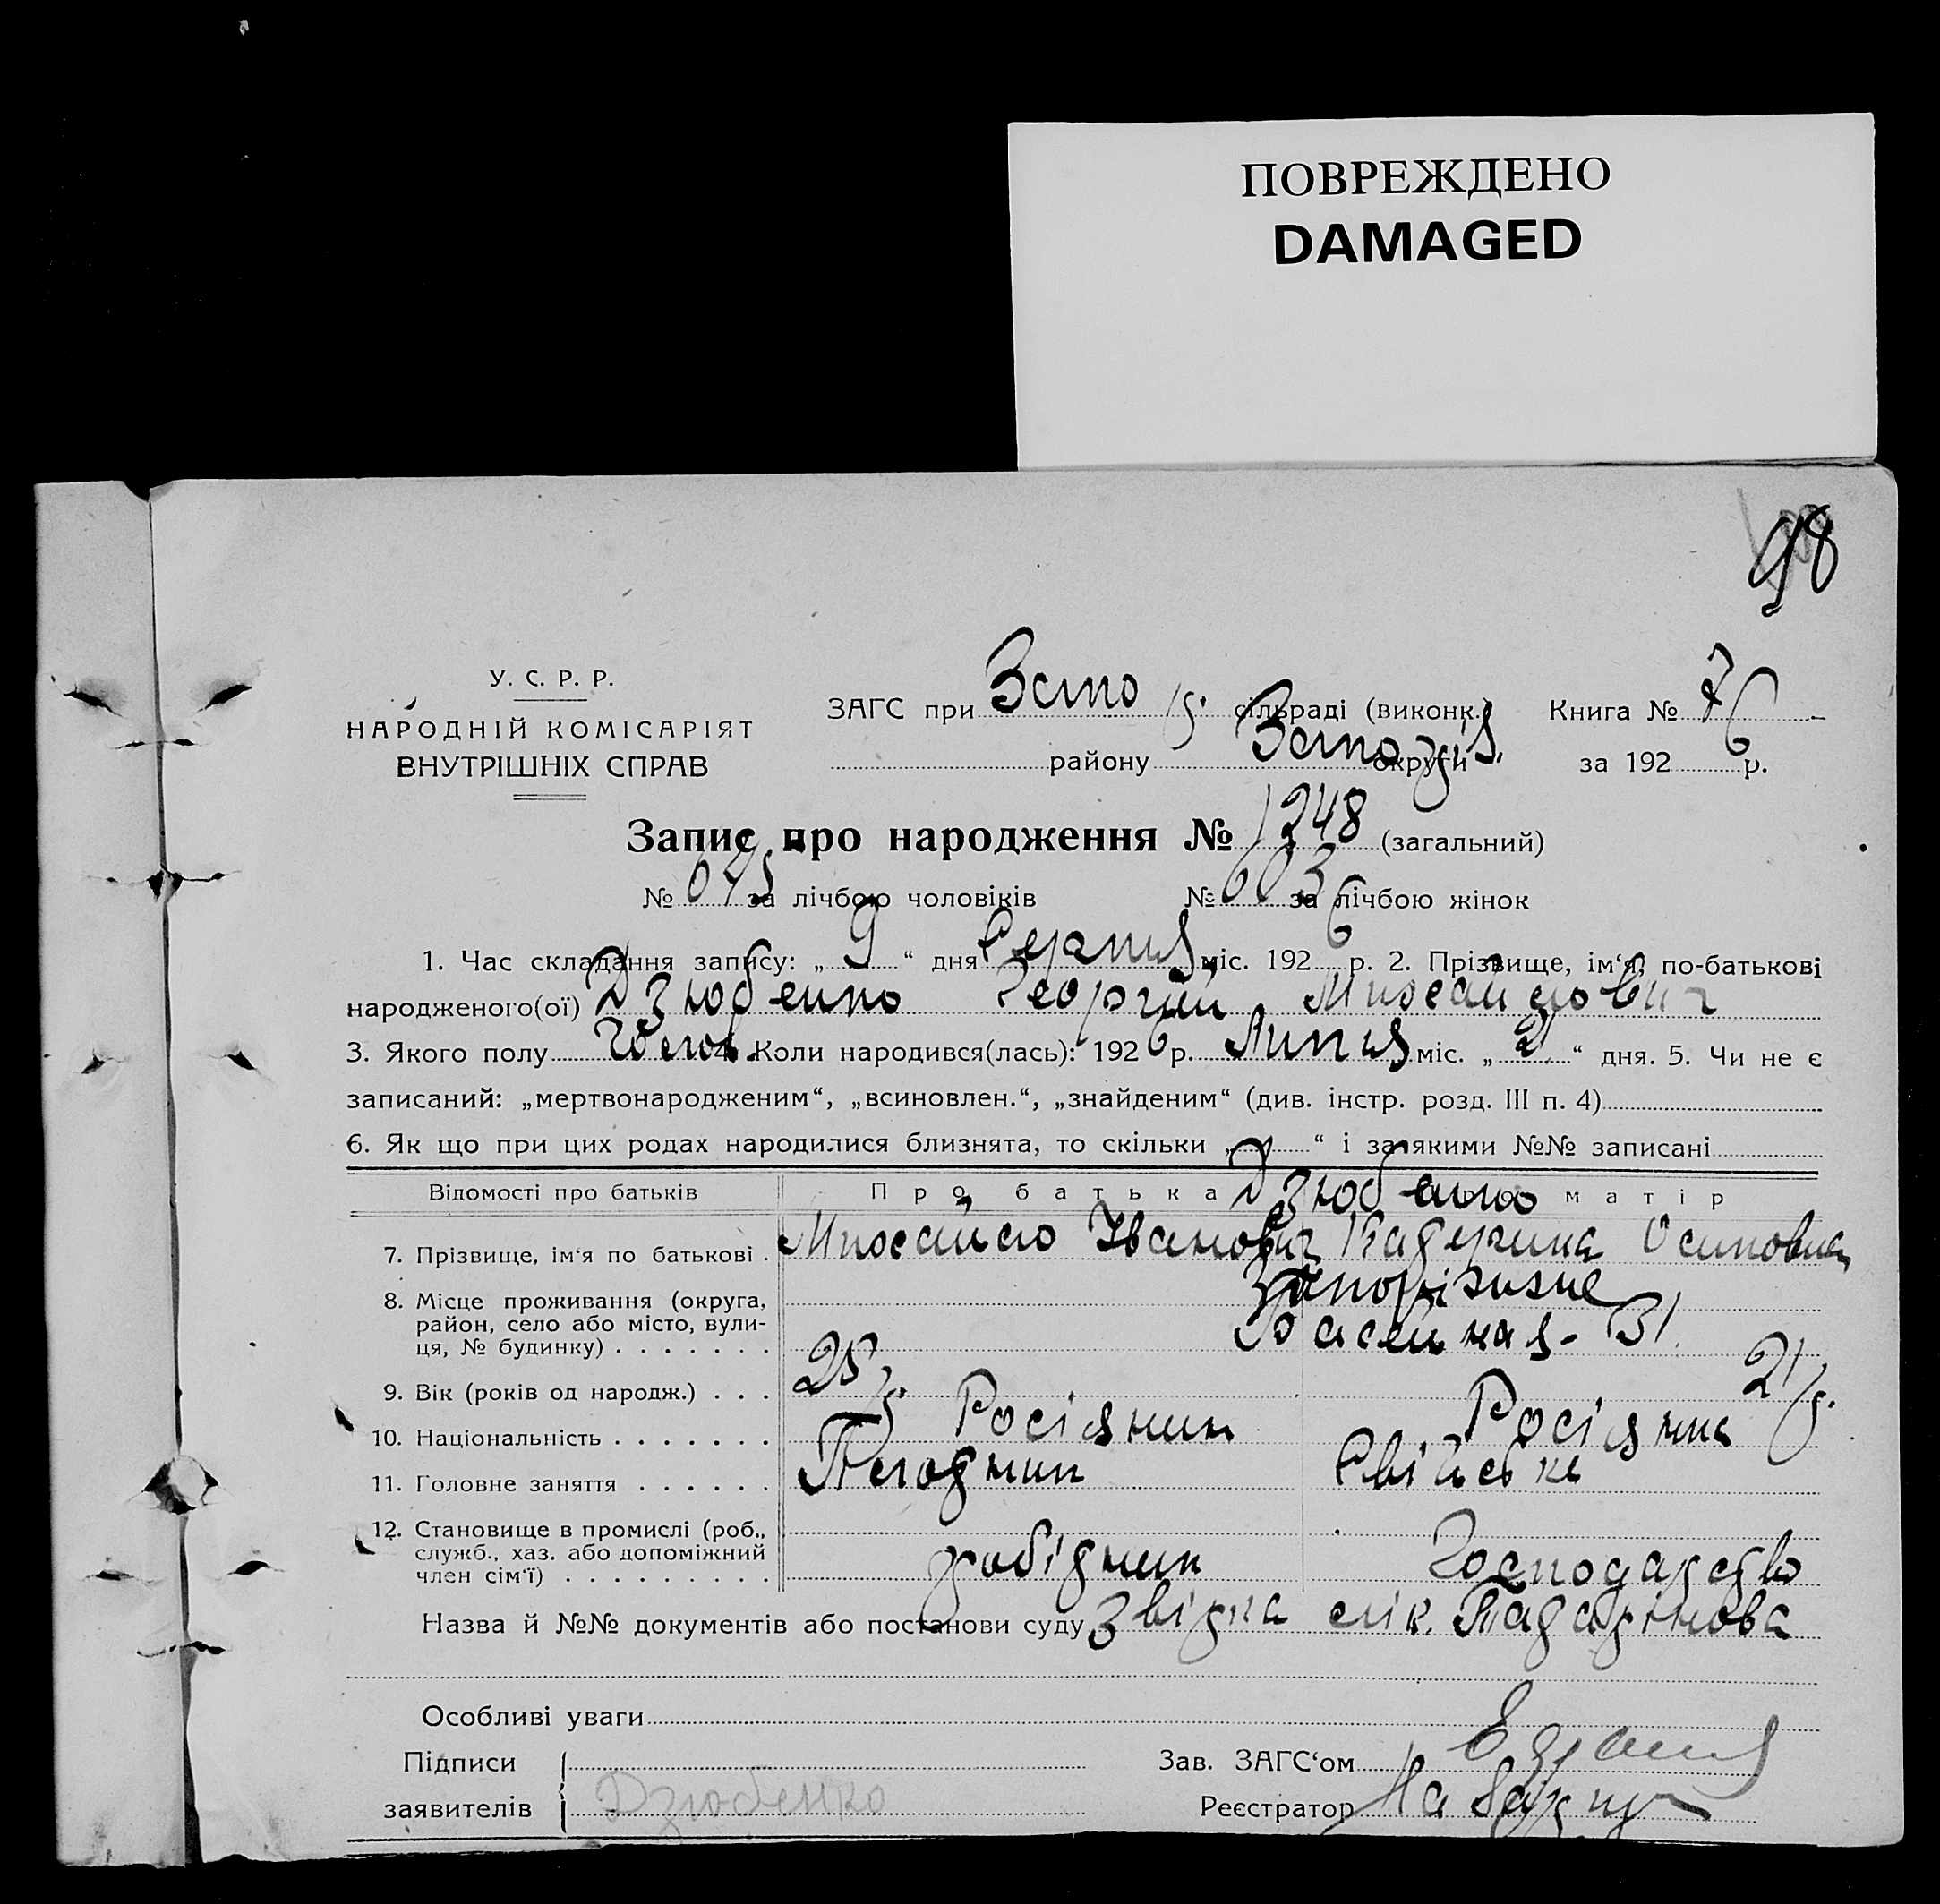 ПОВРЕЖДЕНО
DAMAGED
98
У. С. Р. Р.
НАРОДНІЙ КОМІСАРІЯТ
ВНУТРІШНІХ СПРАВ
ЗАГС при сільраді (виконк.) Книга № 7
району округи за 1926 р.
Запис про народження № 1248 (загальний)
№ 645 за лічбою чоловіків № 603 за лічбою жінок
1. Час складання запису: „ 9 “ дня Серпня міс. 1926 р. 2. Прізвище, ім‘я, по-батькові
народженого(ої) Дзюбенко Георгій Михайлович
3. Якого полу чолов. 4. Коли народився(лась): 1926 р. Липня міс. „ 21 “ дня. 5. Чи не є
записаний: „мертвонародженим“, „всиновлен.“, „знайденим“ (див. інстр. розд. III п. 4)
6. Як що при цих родах народилися близнята, то скільки „ “ і за якими №№ записані
Відомості про батьків Про батька Дзюбенко матір
7. Прізвище, ім‘я по батькові . Михайло Іванович Катерина Осиповна
8. Місце проживання (округа, Запоріжжє
район, село або місто, вули- 31
ця, № будинку)
9. Вік (років од народж.) . . . 25 р. 21 р.
10. Національність Росіянин Росіянка
11. Головне заняття Свійське
12. Становище в промислі (роб.,
служб., хаз. або допоміжний
член сім‘ї) робідник Господарство
Назва й №№ документів або постанови суду Звідка лік.
Особливі уваги
Підписи Зав. ЗАГС‘ом
заявителів Дзюбенко Реєстратор